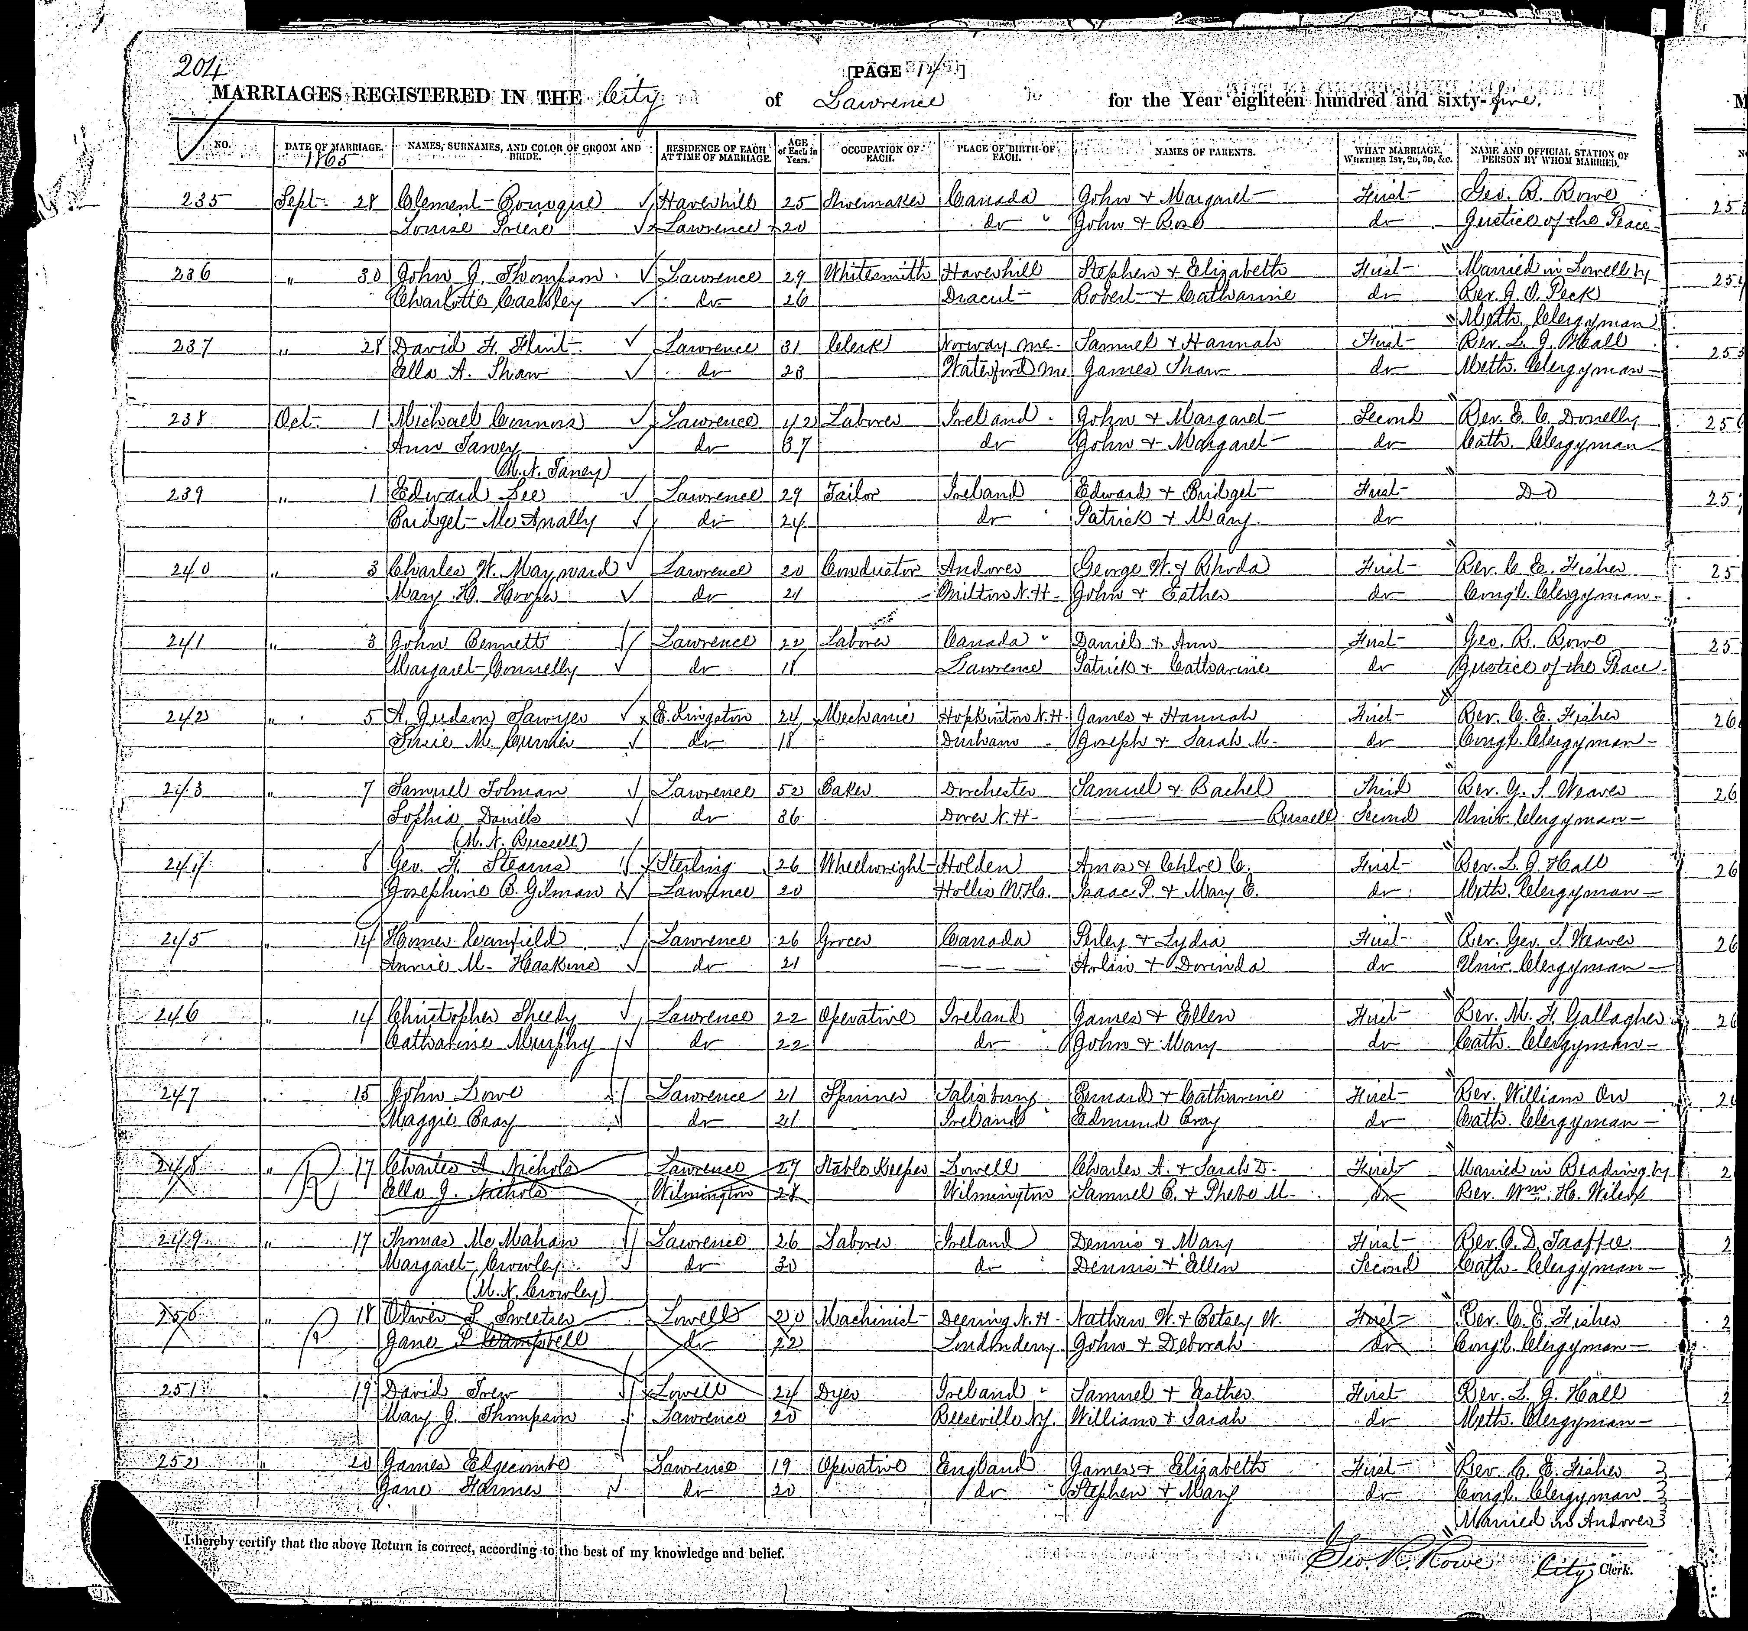 204
[PAGE 14]
MARRIAGES REGISTERED IN THE City of Lawrence for the Year eighteen hundred and sixty-five.
NO. DATE OF MARRIAGE. NAMES, SURNAMES, AND COLOR OF GROOM AND BRIDE. RESIDENCE OF EACH AT TIME OF MARRIAGE. AGE of Each in Years. OCCUPATION OF EACH. PLACE OF BIRTH OF EACH. NAMES OF PARENTS. WHAT MARRIAGE, WHETHER 1ST, 2D, 3D, &C. NAME AND OFFICIAL STATION OF PERSON BY WHOM MARRIED.
1865
235 Sept 28 Clement Haverhill 25 Shoemaker Canada John & Margaret First Geo. R. Rowe
Louise Lawrence 20 do John & Rose do Justice of the Peace
236 " 30 John J. Thompson Lawrence 29 Whitesmith Haverhill Stephen & Elizabeth First Married in Lowell by
Charlotte Cashley do 26 Dracut Robert & Catharine do Rev. J. O. Peck
Meth. Clergyman
237 " 28 David F. Flint Lawrence 31 Clerk Norway Me. Samuel & Hannah First Rev. L. J. Hall
Ella A. Shaw do 23 Waterford Me James Shaw do Meth. Clergyman
238 Oct 1 Michael Connors Lawrence 42 Laborer Ireland John & Margaret Second Rev. E. C. Donelly
Ann Taney do 37 do John & Margaret do Cath. Clergyman
(M. N. Taney)
239 " 1 Edward Lee Lawrence 29 Tailor Ireland Edward & Bridget First Do
Bridget McAnally do 24 do Patrick & Mary do "
240 " 3 Charles W. Maynard Lawrence 20 Conductor Andover George W. & Rhoda First Rev. C. E. Fisher
Mary H. Hooper do 21 Milton N.H. John & Esther do Cong'l. Clergyman
241 " 3 John Bennett Lawrence 22 Laborer Canada Daniel & Ann First Geo. R. Rowe
Margaret Connelly do 18 Lawrence Patrick & Catharine do Justice of the Peace
242 " 5 A. Judson Sawyer E. Kingston 24 Mechanic Hopkinton N.H. James & Hannah First Rev. C. E. Fisher
Susie M. Currier do 18 Durham Joseph & Sarah M. do Cong'l. Clergyman
243 " 7 Samuel Tolman Lawrence 52 Baker Dorchester Samuel & Rachel Third Rev. G. S. Weaver
Sophia Daniels do 36 Dover N.H. Russell Second Univ. Clergyman
(M. N. Russell)
244 " 8 Geo. F. Stearns Sterling 26 Wheelwright Holden Amos & Chloe C. First Rev. L. J. Hall
Josephine B. Gilman Lawrence 20 Hollis N.Ha. Isaac P. & Mary E. do Meth. Clergyman
245 " 14 Homer Canfield Lawrence 26 Grocer Canada Perley & Lydia First Rev. Geo. S. Weaver
Annie M. Haskins do 21 & Dorinda do Univ. Clergyman
246 " 14 Christopher Sheedy Lawrence 22 Operative Ireland James & Ellen First Rev. M. F. Gallagher
Catharine Murphy do 22 do John & Mary do Cath. Clergyman
247 " 15 John Lowe Lawrence 21 Spinner Salisbury Bernard & Catharine First Rev. William Orr
Maggie Bray do 21 Ireland Edmund Bray do Cath. Clergyman
248 " 17 Charles A. Nichols Lawrence 27 Stable Keeper Lowell Charles A. & Sarah D. First Married in Reading by
Ella J. Nichols Wilmington 28 Wilmington Samuel B. & Phebe M. do Rev. Wm. H. Wilcox
249 " 17 Thomas McMahan Lawrence 26 Laborer Ireland Dennis & Mary First Rev. J. D. Taaffe
Margaret Crowley do 30 do Dennis & Ellen Second Cath. Clergyman
(M. N. Crowley)
250 " 18 Oliver L. Sweetser Lowell 20 Machinist Deering N.H. Nathan W. & Betsey W. First Rev. C. E. Fisher
Jane P. Campbell do 22 Londonderry John & Deborah do Cong'l. Clergyman
251 " 19 David Trew Lowell 24 Dyer Ireland Samuel & Esther First Rev. L. J. Hall
Mary J. Thompson Lawrence 20 Reeseville N.Y. William & Sarah do Meth. Clergyman
252 " 20 James Edgecombe Lawrence 19 Operative England James & Elizabeth First Rev. C. E. Fisher
Jane Farmer do 20 do Stephen & Mary do Cong'l. Clergyman
Married in Andover
I hereby certify that the above Return is correct, according to the best of my knowledge and belief.
Geo. R. Rowe City Clerk.